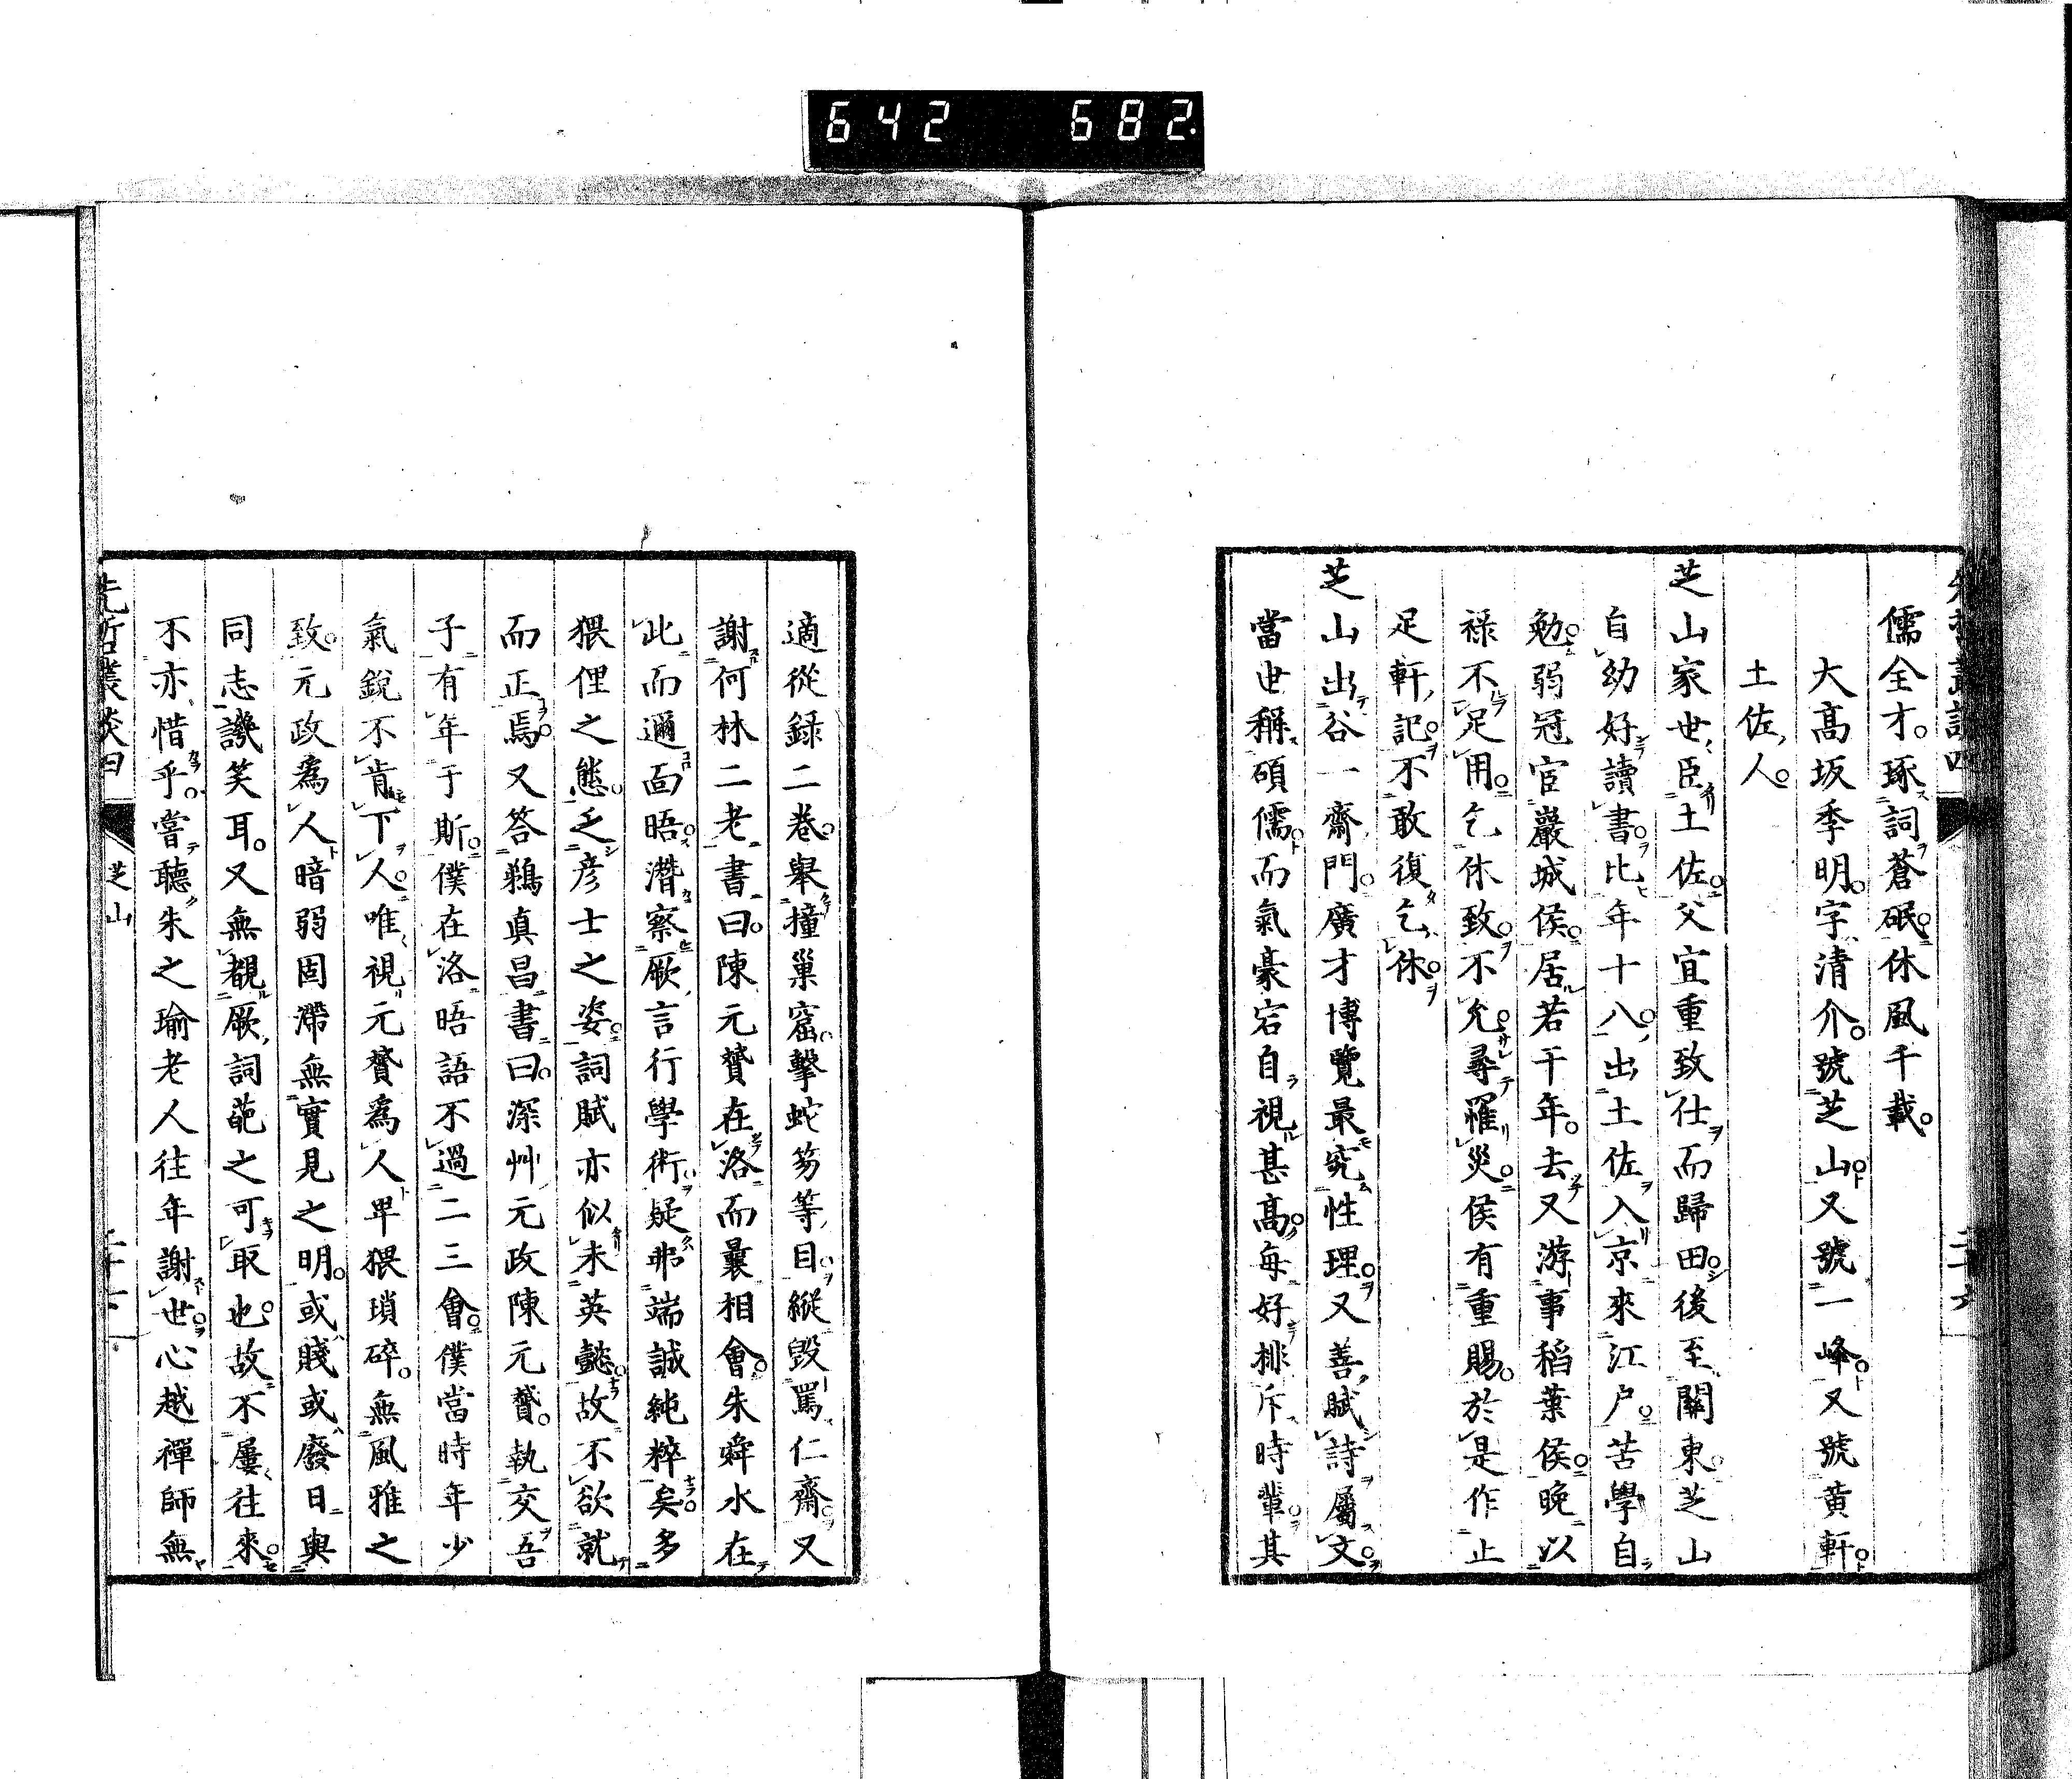 642 682.
先哲叢談四
二十六
儒全才。琢詞蒼硯。休風千載。
大高坂季明。字清介。號芝山。又號一峰。又號黄軒。
土佐人。
芝山家世臣土佐。父宜重致仕而歸田。後至關東。芝山
自幼好讀書。比年十八。出土佐入京。來江戸。苦學自
勉。弱冠宦巖城侯。居若干年。去又游事稻葉侯。晩以
禄不足用。乞休致。不允。尋罹災。侯有重賜。於是作止
足軒記。不敢復乞休。
芝山出谷一齋門。廣才博覽。最究性理。又善賦詩屬文。
當世稱碩儒。而氣豪宕。自視甚高。毎好排斥時輩。其
適從録二卷。舉撞巢窟。擊蛇笏等目。縱毀罵仁齋。又
謝何林二老書曰。陳元贇在洛而曩相會。朱舜水在
此而邇面晤。潛察厥言行學術。疑弗端誠純粹矣。多
猥俚之態。乏彦士之姿。詞賦亦似未英懿。故不欲就
而正焉。又答鵜真昌書曰。深艸元政陳元贇。執交吾
子有年于斯。僕在洛晤語不過二三會。僕當時年少
氣鋭不肯下人。唯視元贇爲人卑猥瑣碎。無風雅之
致。元政爲人暗弱固滯無實見之明。或賤或廢。日與
同志譏笑耳。又無覩厥詞葩之可取也。故不屢往來。
不亦惜乎。嘗聽朱之瑜老人往年謝世。心越禪師無
先哲叢談四
芝山